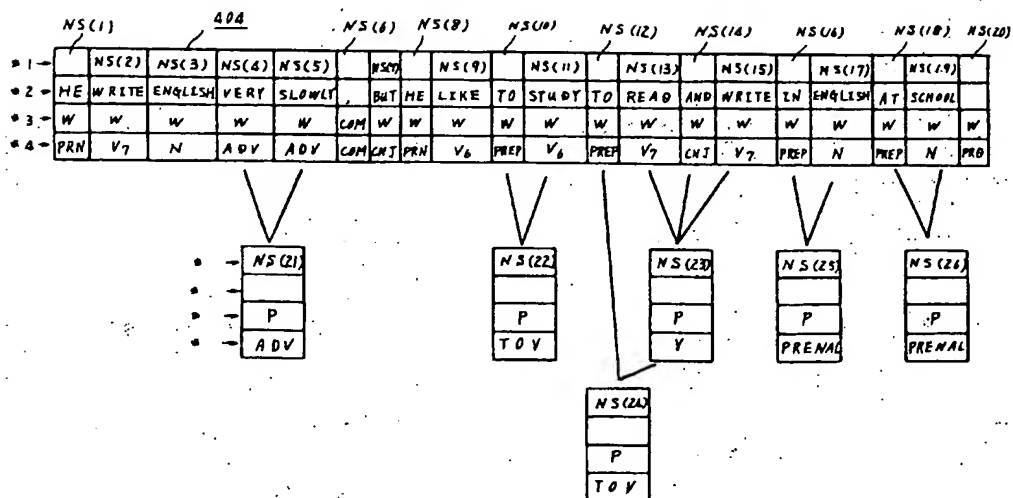 NS(1) 404 NS(6) NS(8) NS(10) NS(12) NS(14) NS(16) NS(18) NS(20)
*1 NS(2) NS(3) NS(4) NS(5) NS(7) NS(9) NS(11) NS(13) NS(15) NS(17) NS(19)
*2 HE WRITE ENGLISH VERY SLOWLY , BUT HE LIKE TO STUDY TO READ AND WRITE IN ENGLISH AT SCHOOL .
*3 W W W W W COM W W W W W W W W W W W W W W
*4 PRN V7 N ADV ADV COM CNJ PRN V6 PREP V6 PREP V7 CNJ V7 PREP N PREP N PRD
* NS(21) NS(22) NS(23) NS(25) NS(26)
*
* P P P P P
* ADV TOV V PRENAL PRENAL
NS(24)
P
TOV